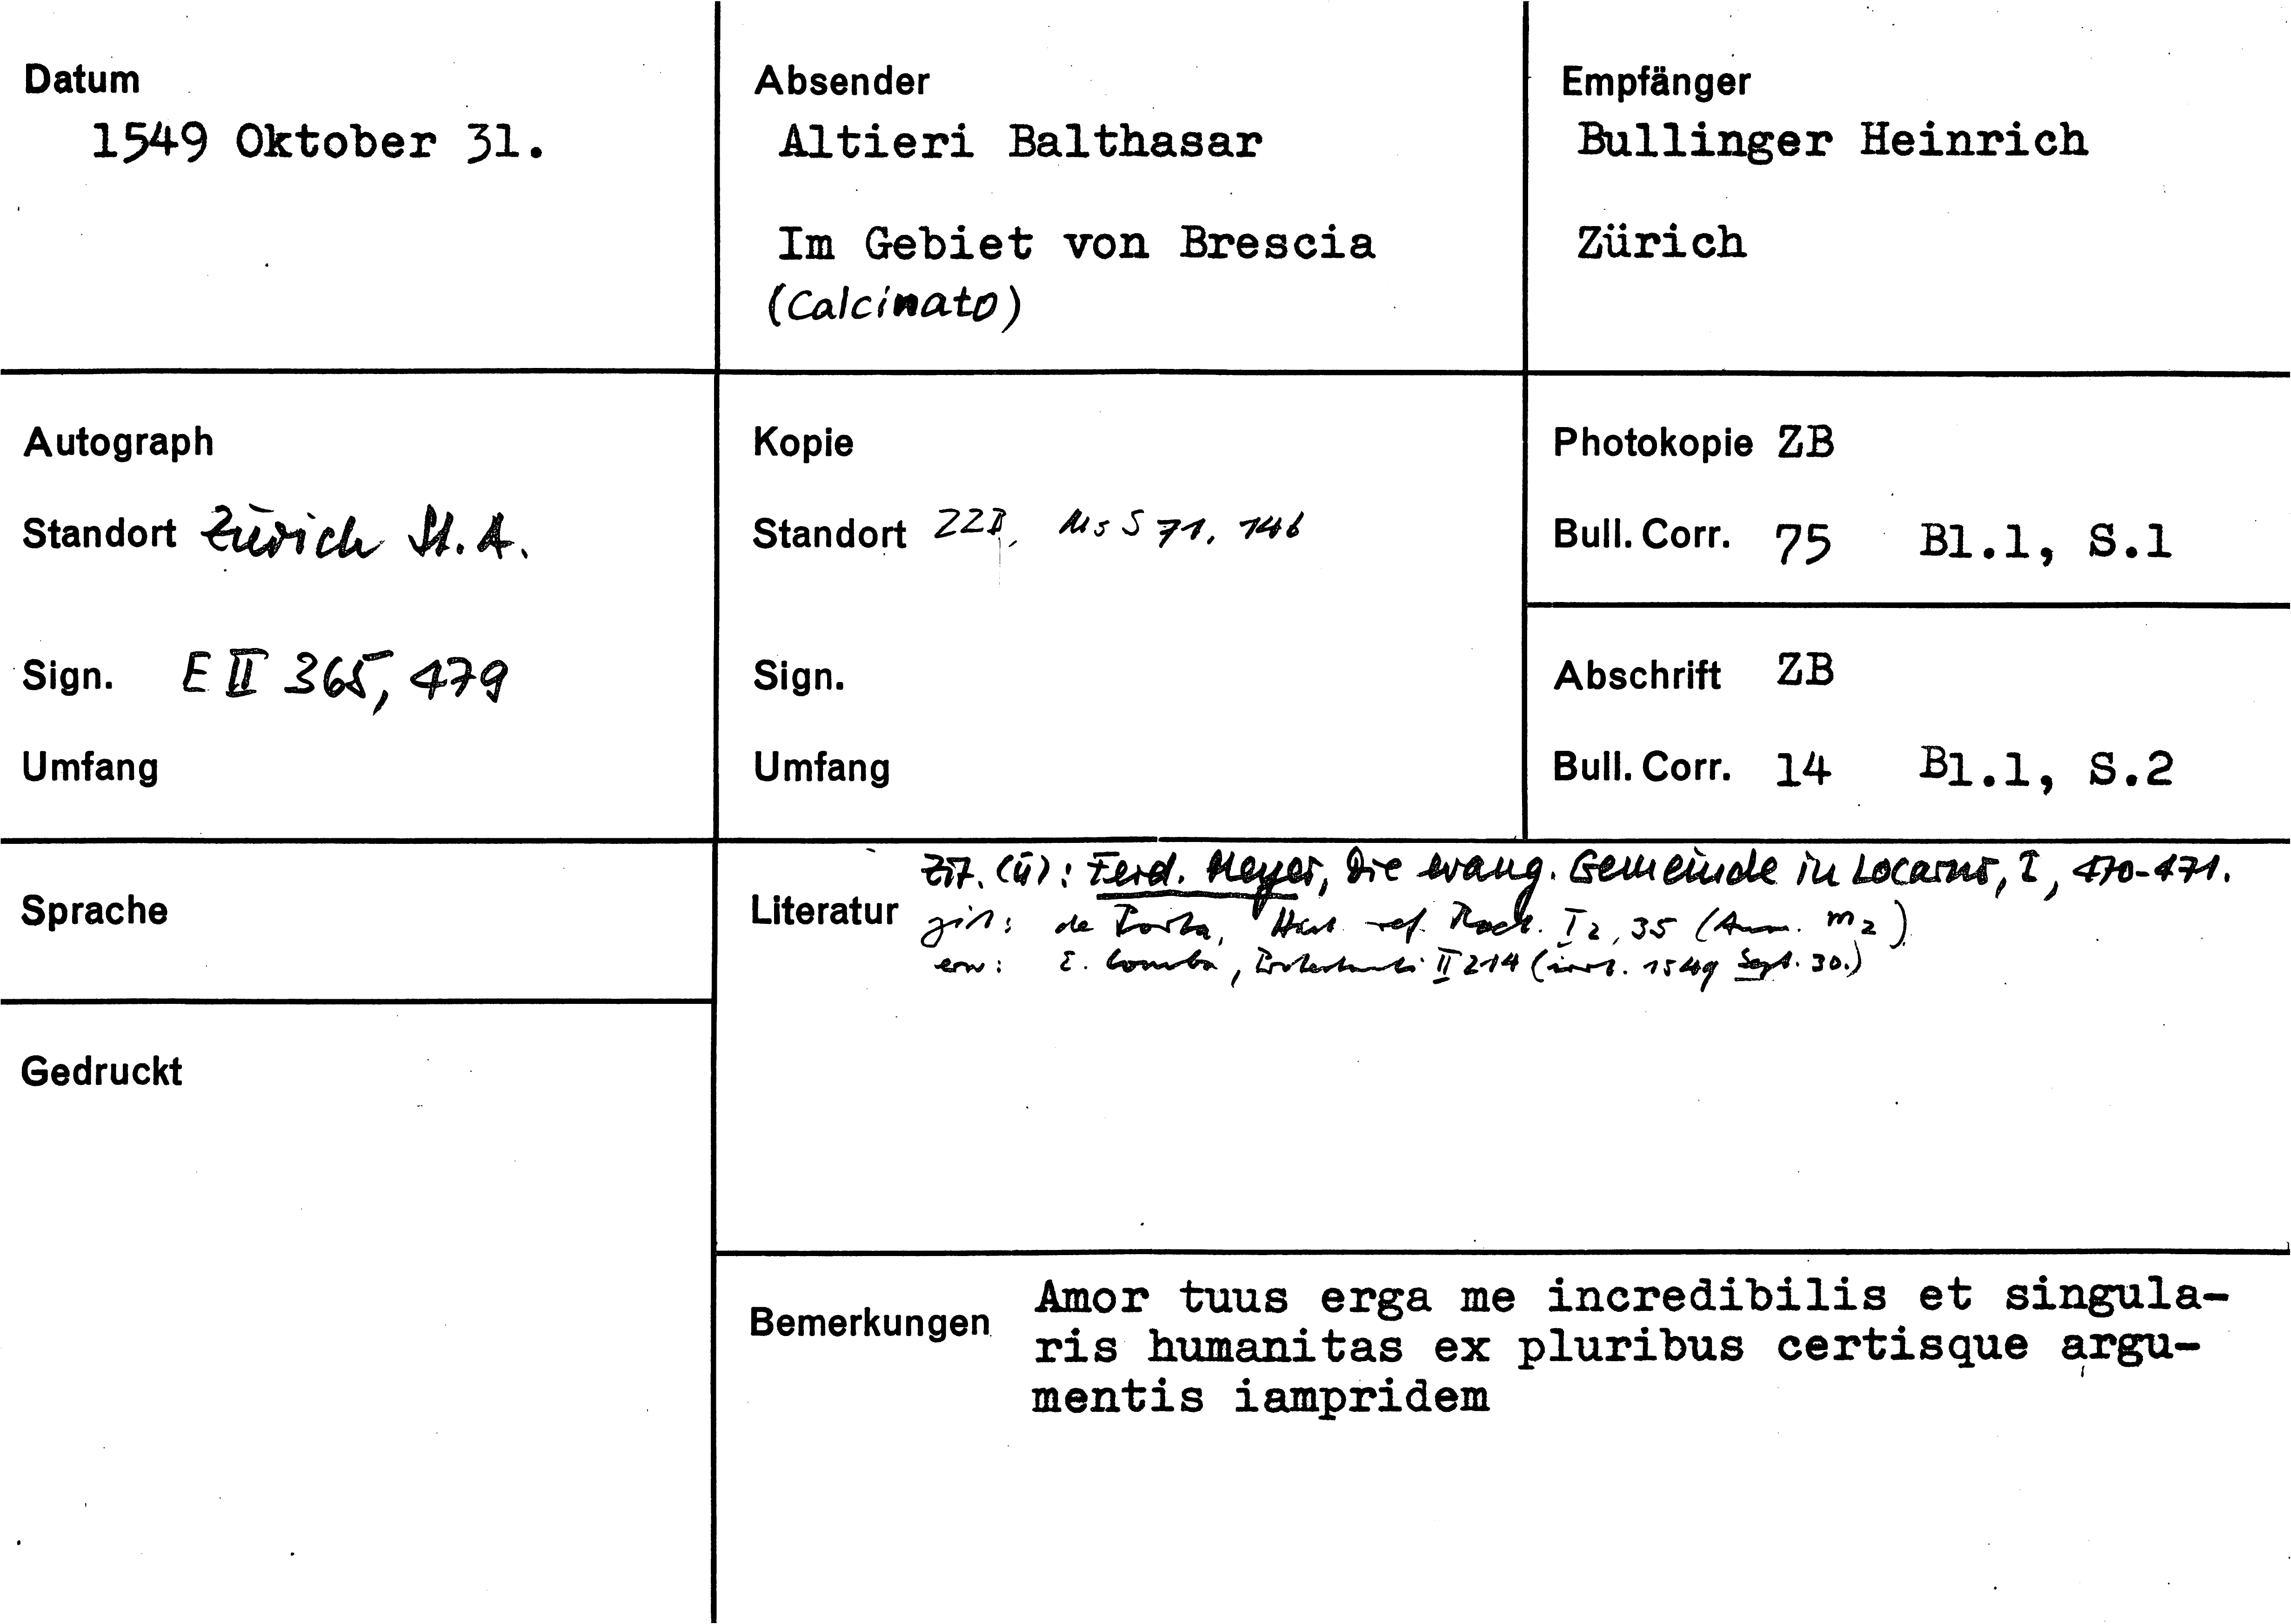 Datum
1549 Oktober 31.
Absender
Altieri Balthasar
Im Gebiet von Brescia
(Calcinato)
Empfänger
Bullinger Heinrich
Zürich
Autograph
Standort Zürich St. A.
Sign. E II 365, 479
Umfang
Kopie
Standort ZZB, Ms S 71, 146
Sign.
Umfang
Photokopie ZB
Bull. Corr. 75 Bl.1, S.1
Abschrift ZB
Bull. Corr. 14 Bl.1, S.2
Sprache
Gedruckt
Literatur
Zit. (ü): Ferd. Meyer, Die evang. Gemeinde in Locarno, I, 470-471.
zit: de Porta, Hist. ref. Raet. I2, 35 (Anm. m2)
erw: E. Comba, Protestanti II 214 (irrt. 1549 Sept. 30.)
Bemerkungen
Amor tuus erga me incredibilis et singula-
ris humanitas ex pluribus certisque argu-
mentis iampridem